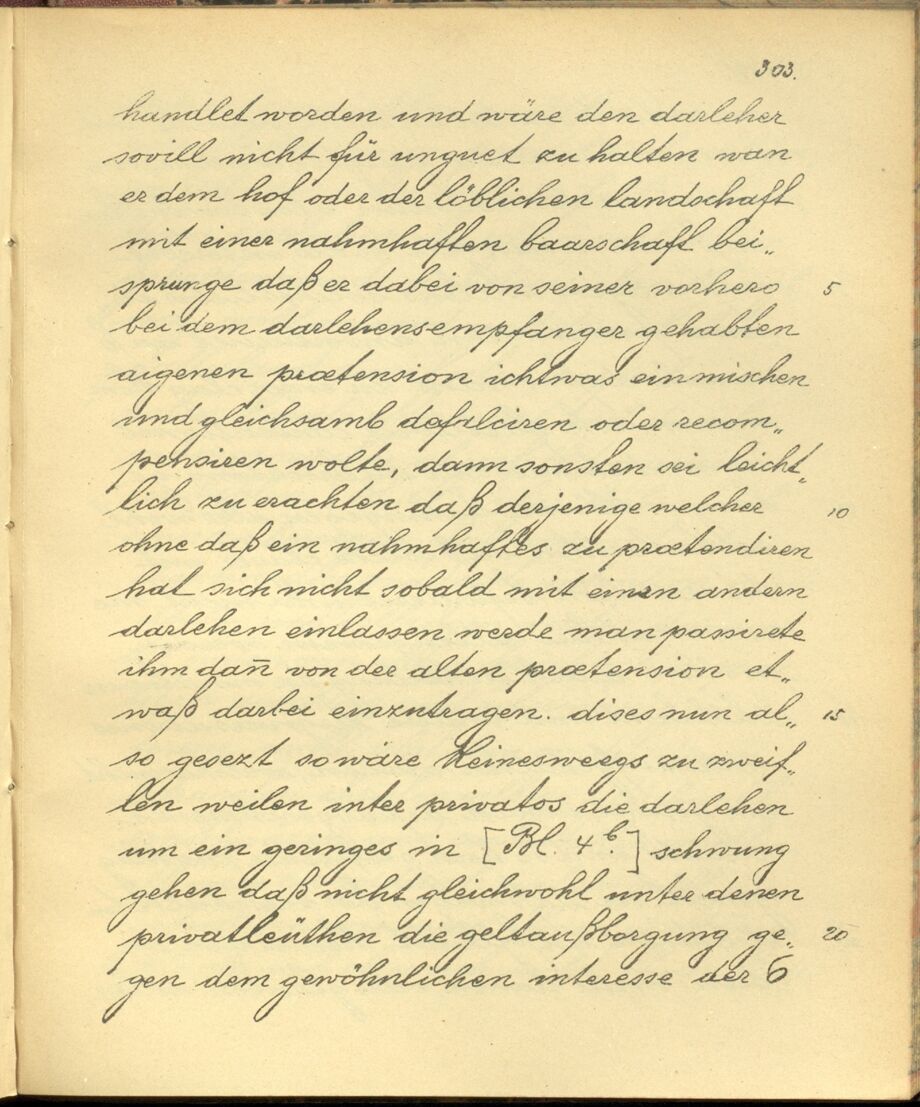 303.
handlet worden und wäre den darleher
sovill nicht für unguet zu halten wan
er dem hof oder der löblichen landschaft
mit einer nahmhaften baarschaft bei„
sprunge daß er dabei von seiner vorhero 5
bei dem darlehensempfanger gehabten
aigenen prætension ichtwas einmischen
und gleichsamb defalciren oder recom„
pensiren wolte, dann sonsten sei leicht„
lich zu erachten daß derjenige welcher 10
ohne daß ein nahmhaftes zu prætendiren
hat sich nicht sobald mit einen andern
darlehen einlassen werde man passirete
ihm dan̄ von der alten prætension et„
waß darbei einzutragen. dises nun al„ 15
so gesezt so wäre keinesweegs zu zweif„
len weilen inter privatos die darlehen
um ein geringes in [Bl. 4b.] schwung
gehen daß nicht gleichwohl unter denen
privatleüthen die geltaußborgung ge„ 20
gen dem gewöhnlichen interesse der 6